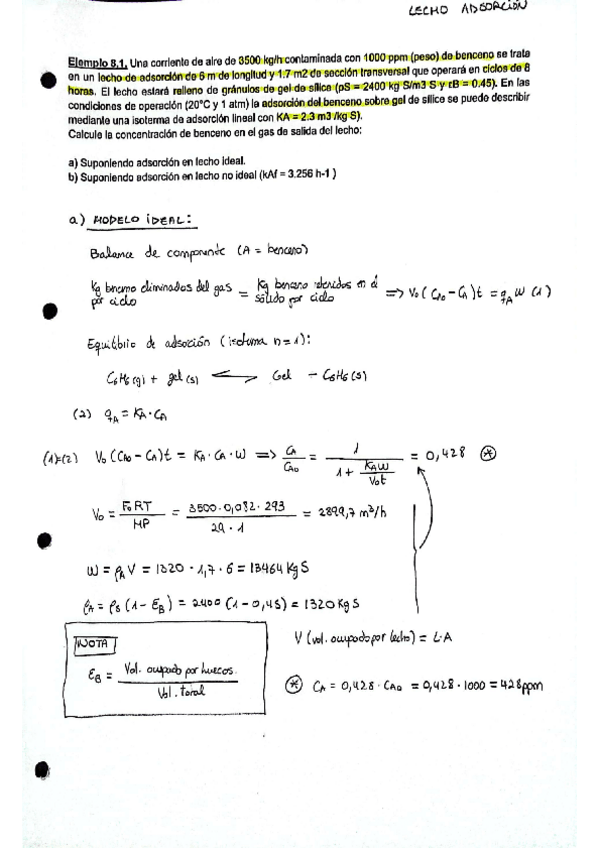 LECHO ADSORCIÓN
Ejemplo 8.1. Una corriente de aire de 3500 kg/h contaminada con 1000 ppm (peso) de benceno se trata
en un lecho de adsorción de 6 m de longitud y 1.7 m2 de sección transversal que operará en ciclos de 8
horas. El lecho estará relleno de gránulos de gel de sílice (ρS = 2400 kg S/m3 S y εB = 0.45). En las
condiciones de operación (20°C y 1 atm) la adsorción del benceno sobre gel de sílice se puede describir
mediante una isoterma de adsorción lineal con KA = 2.3 m3 /kg S).
Calcule la concentración de benceno en el gas de salida del lecho:
a) Suponiendo adsorción en lecho ideal.
b) Suponiendo adsorción en lecho no ideal (kAf = 3.256 h-1 )
a) MODELO IDEAL:
Balance de componente (A = benceno)
Kg benceno eliminados del gas por ciclo = Kg benceno retenidos en el sólido por ciclo => V₀ (CA₀ - CA) t = qA W (1)
Equilibrio de adsorción (isoterma n = 1):
C₆H₆ (g) + gel (s) ⟷ Gel - C₆H₆ (s)
(2) qA = KA · CA
(1)=(2) V₀ (CA₀ - CA) t = KA · CA · W => CA / CA₀ = 1 / (1 + KAW / V₀t) = 0,428 *
V₀ = F₀RT / MP = 3500 · 0,082 · 293 / 29 · 1 = 2899,7 m³/h
W = ρA V = 1320 · 1,7 · 6 = 13464 Kg S
ρA = ρS (1 - EB) = 2400 (1 - 0,45) = 1320 Kg S
NOTA
EB = Vol. ocupado por huecos. / Vol. total
V (vol. ocupado por lecho) = L·A
* CA = 0,428 · CA₀ = 0,428 · 1000 = 428 ppm